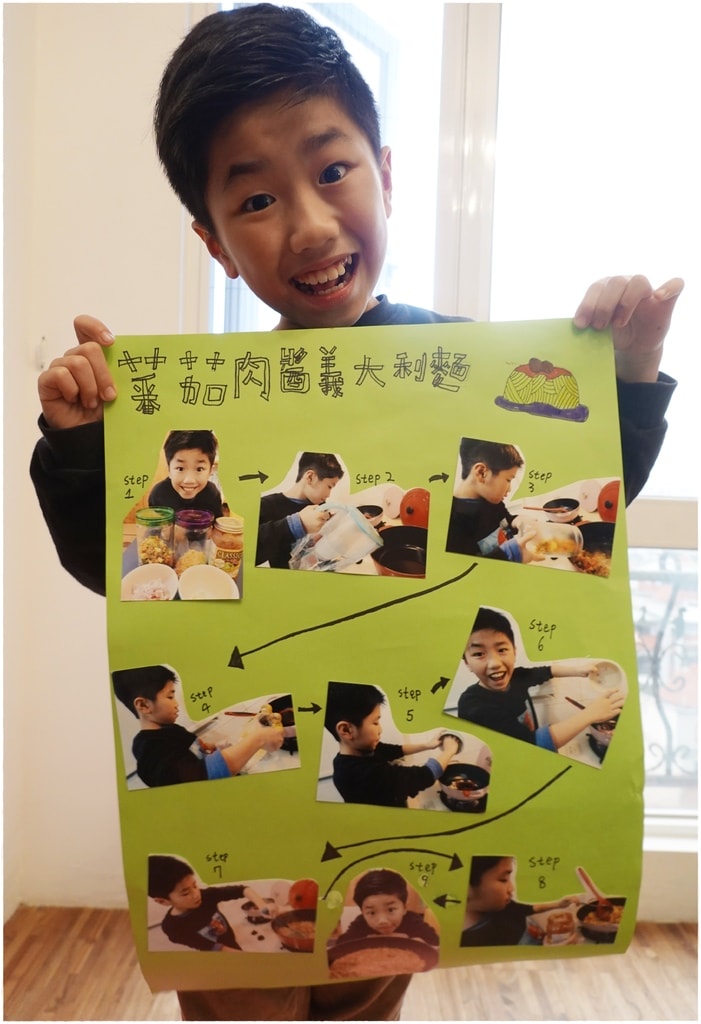 蕃茄肉醬義大利麵
step
1
step 2
step
3
step
4
step
5
step
6
step
7
step
8
step
9